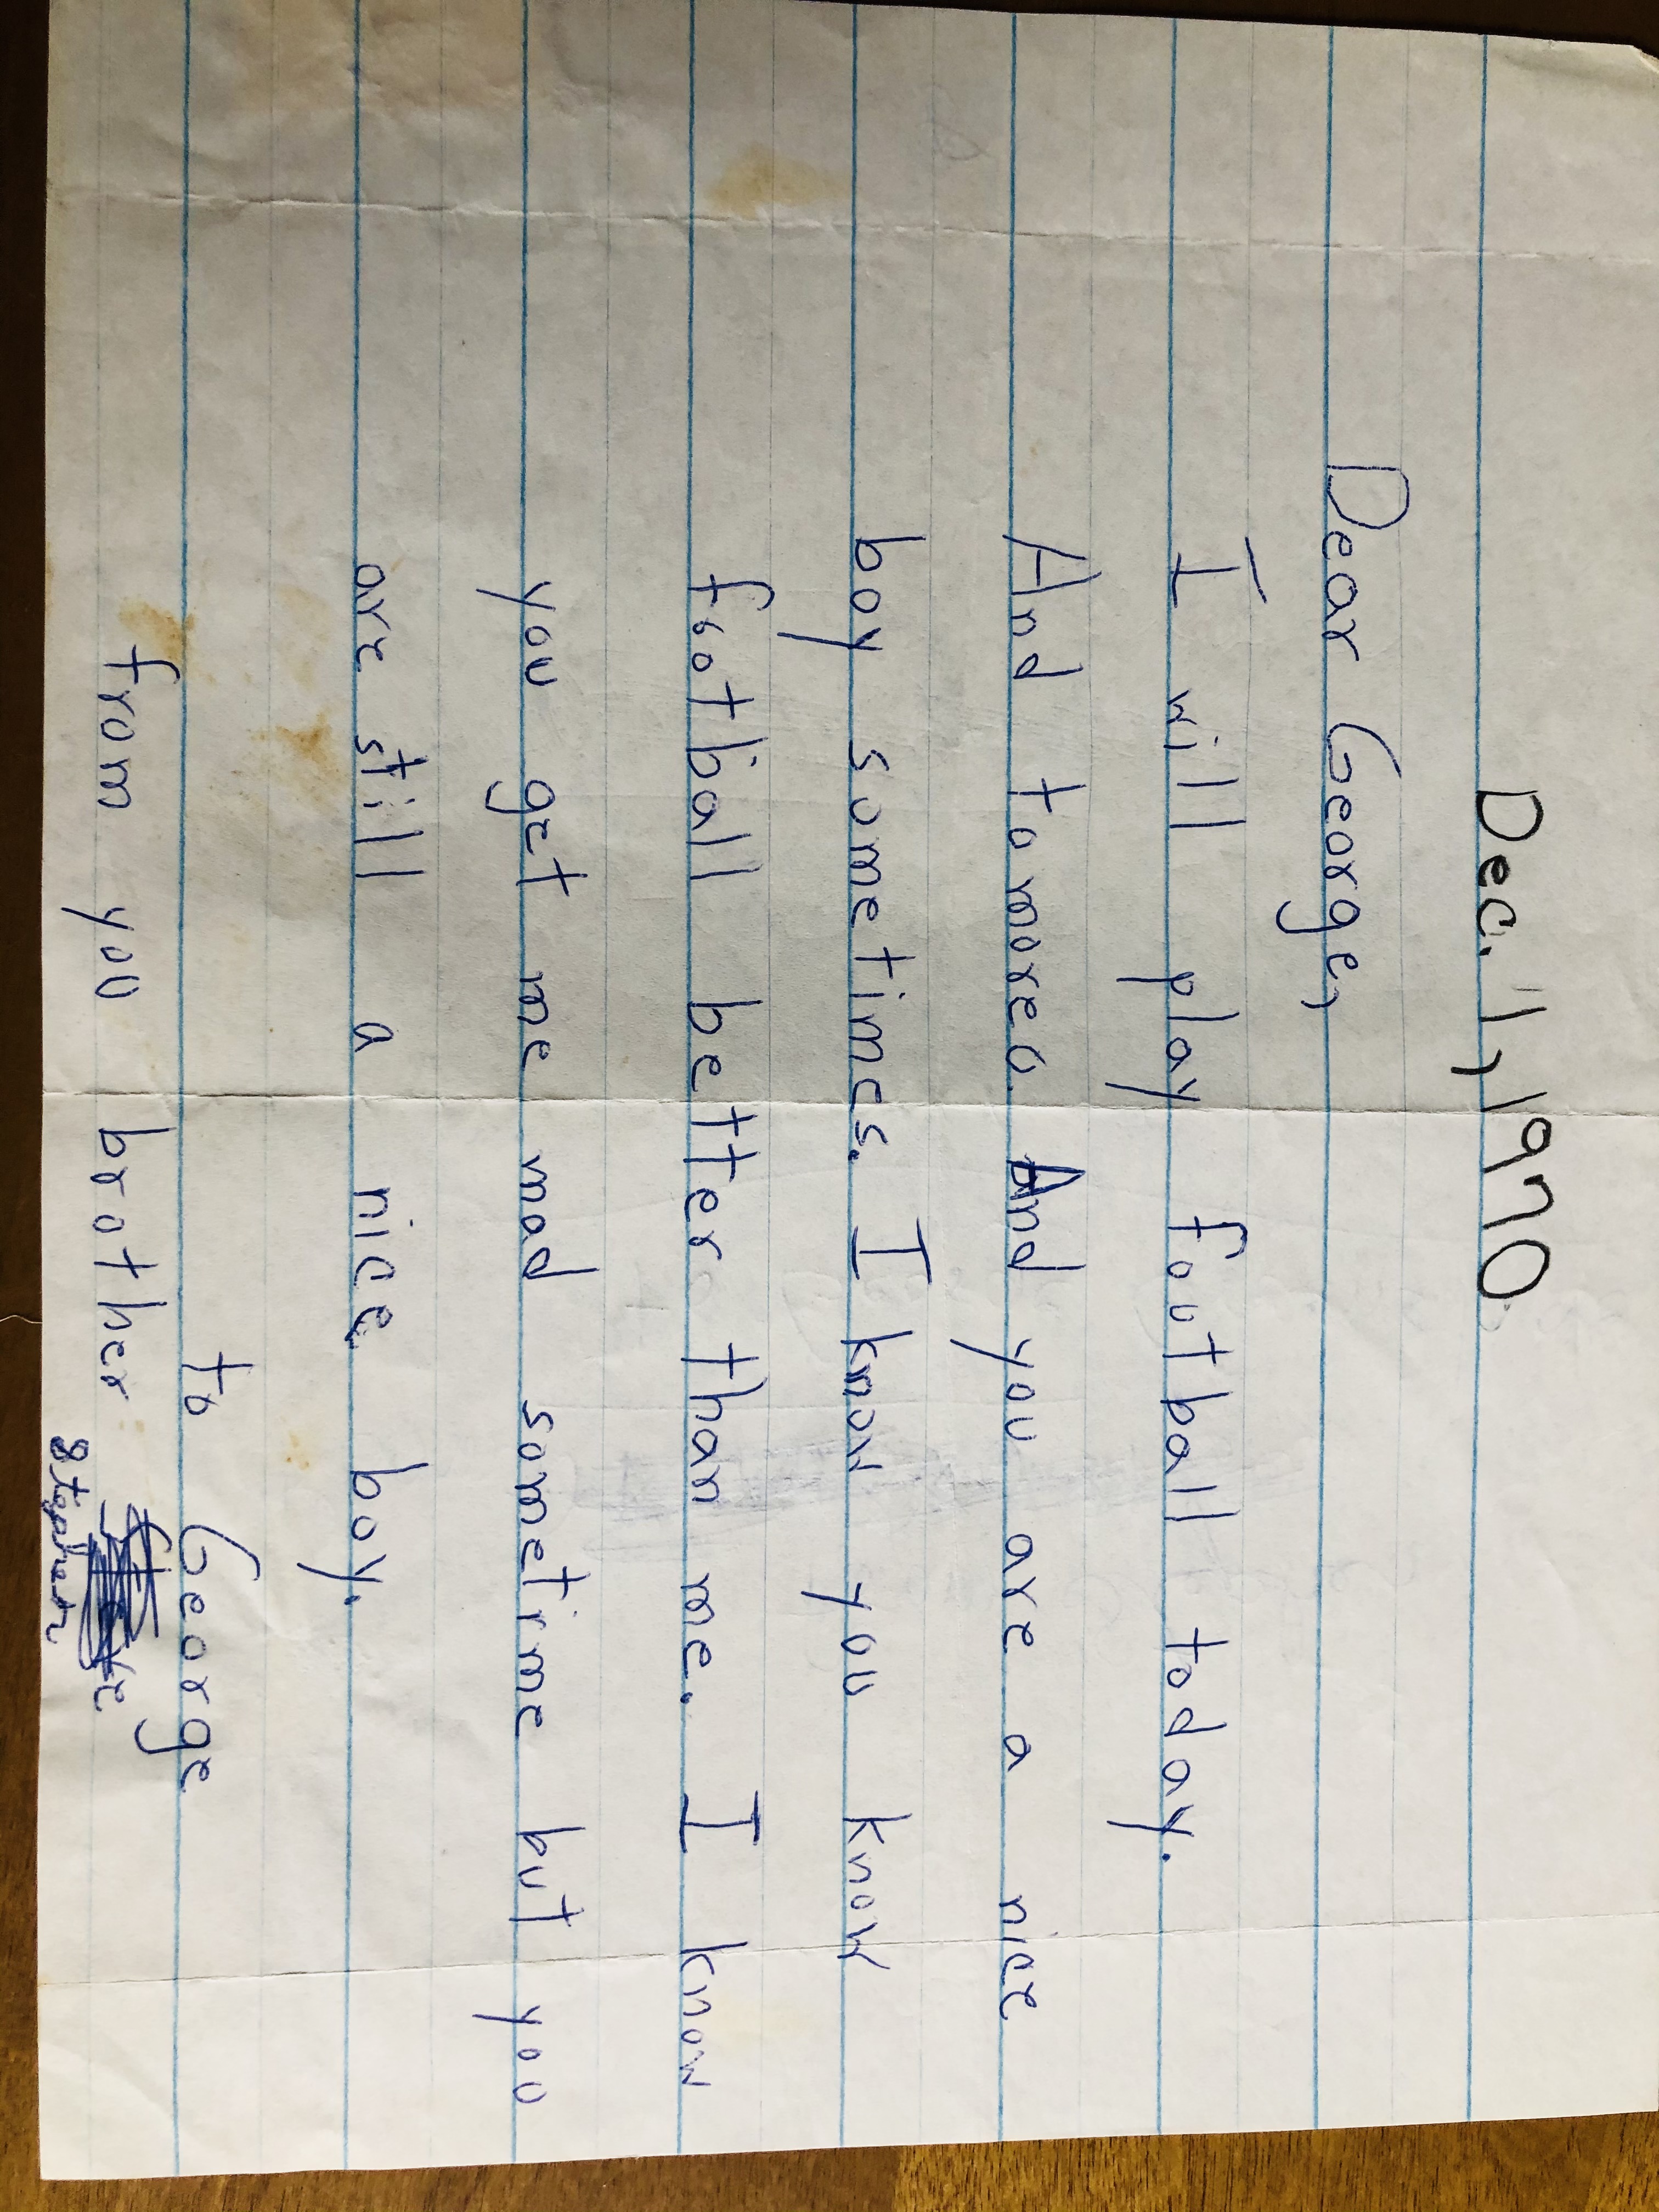 Dec. 1, 1970
Dear George,
I will play football today.
And tomoreo. And you are a nice
boy sometimes. I know you know
football better than me. I know
you get me mad sometime but you
are still a nice boy.
to George
from you brother
Stephen